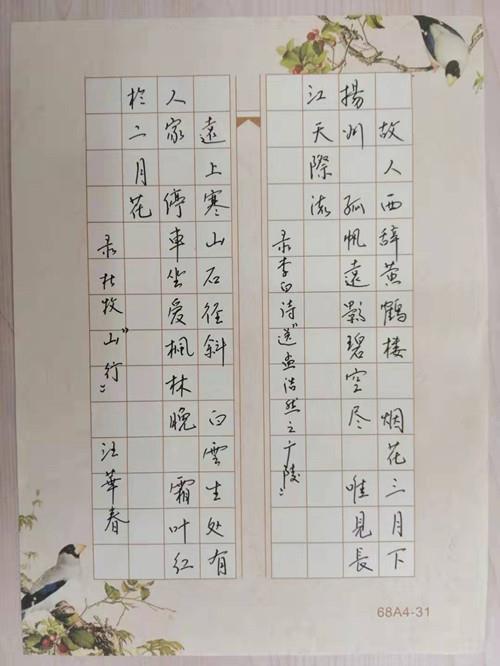 故人西辞黄鶴楼 烟花三月下
揚州 孤帆遠影碧空尽 唯見長
江天際流
录李白诗“送孟浩然之广陵”
遠上寒山石径斜 白雲生处有
人家 停車坐爱楓林晚 霜叶红
於二月花
录杜牧“山行” 汪華春
68A4-31